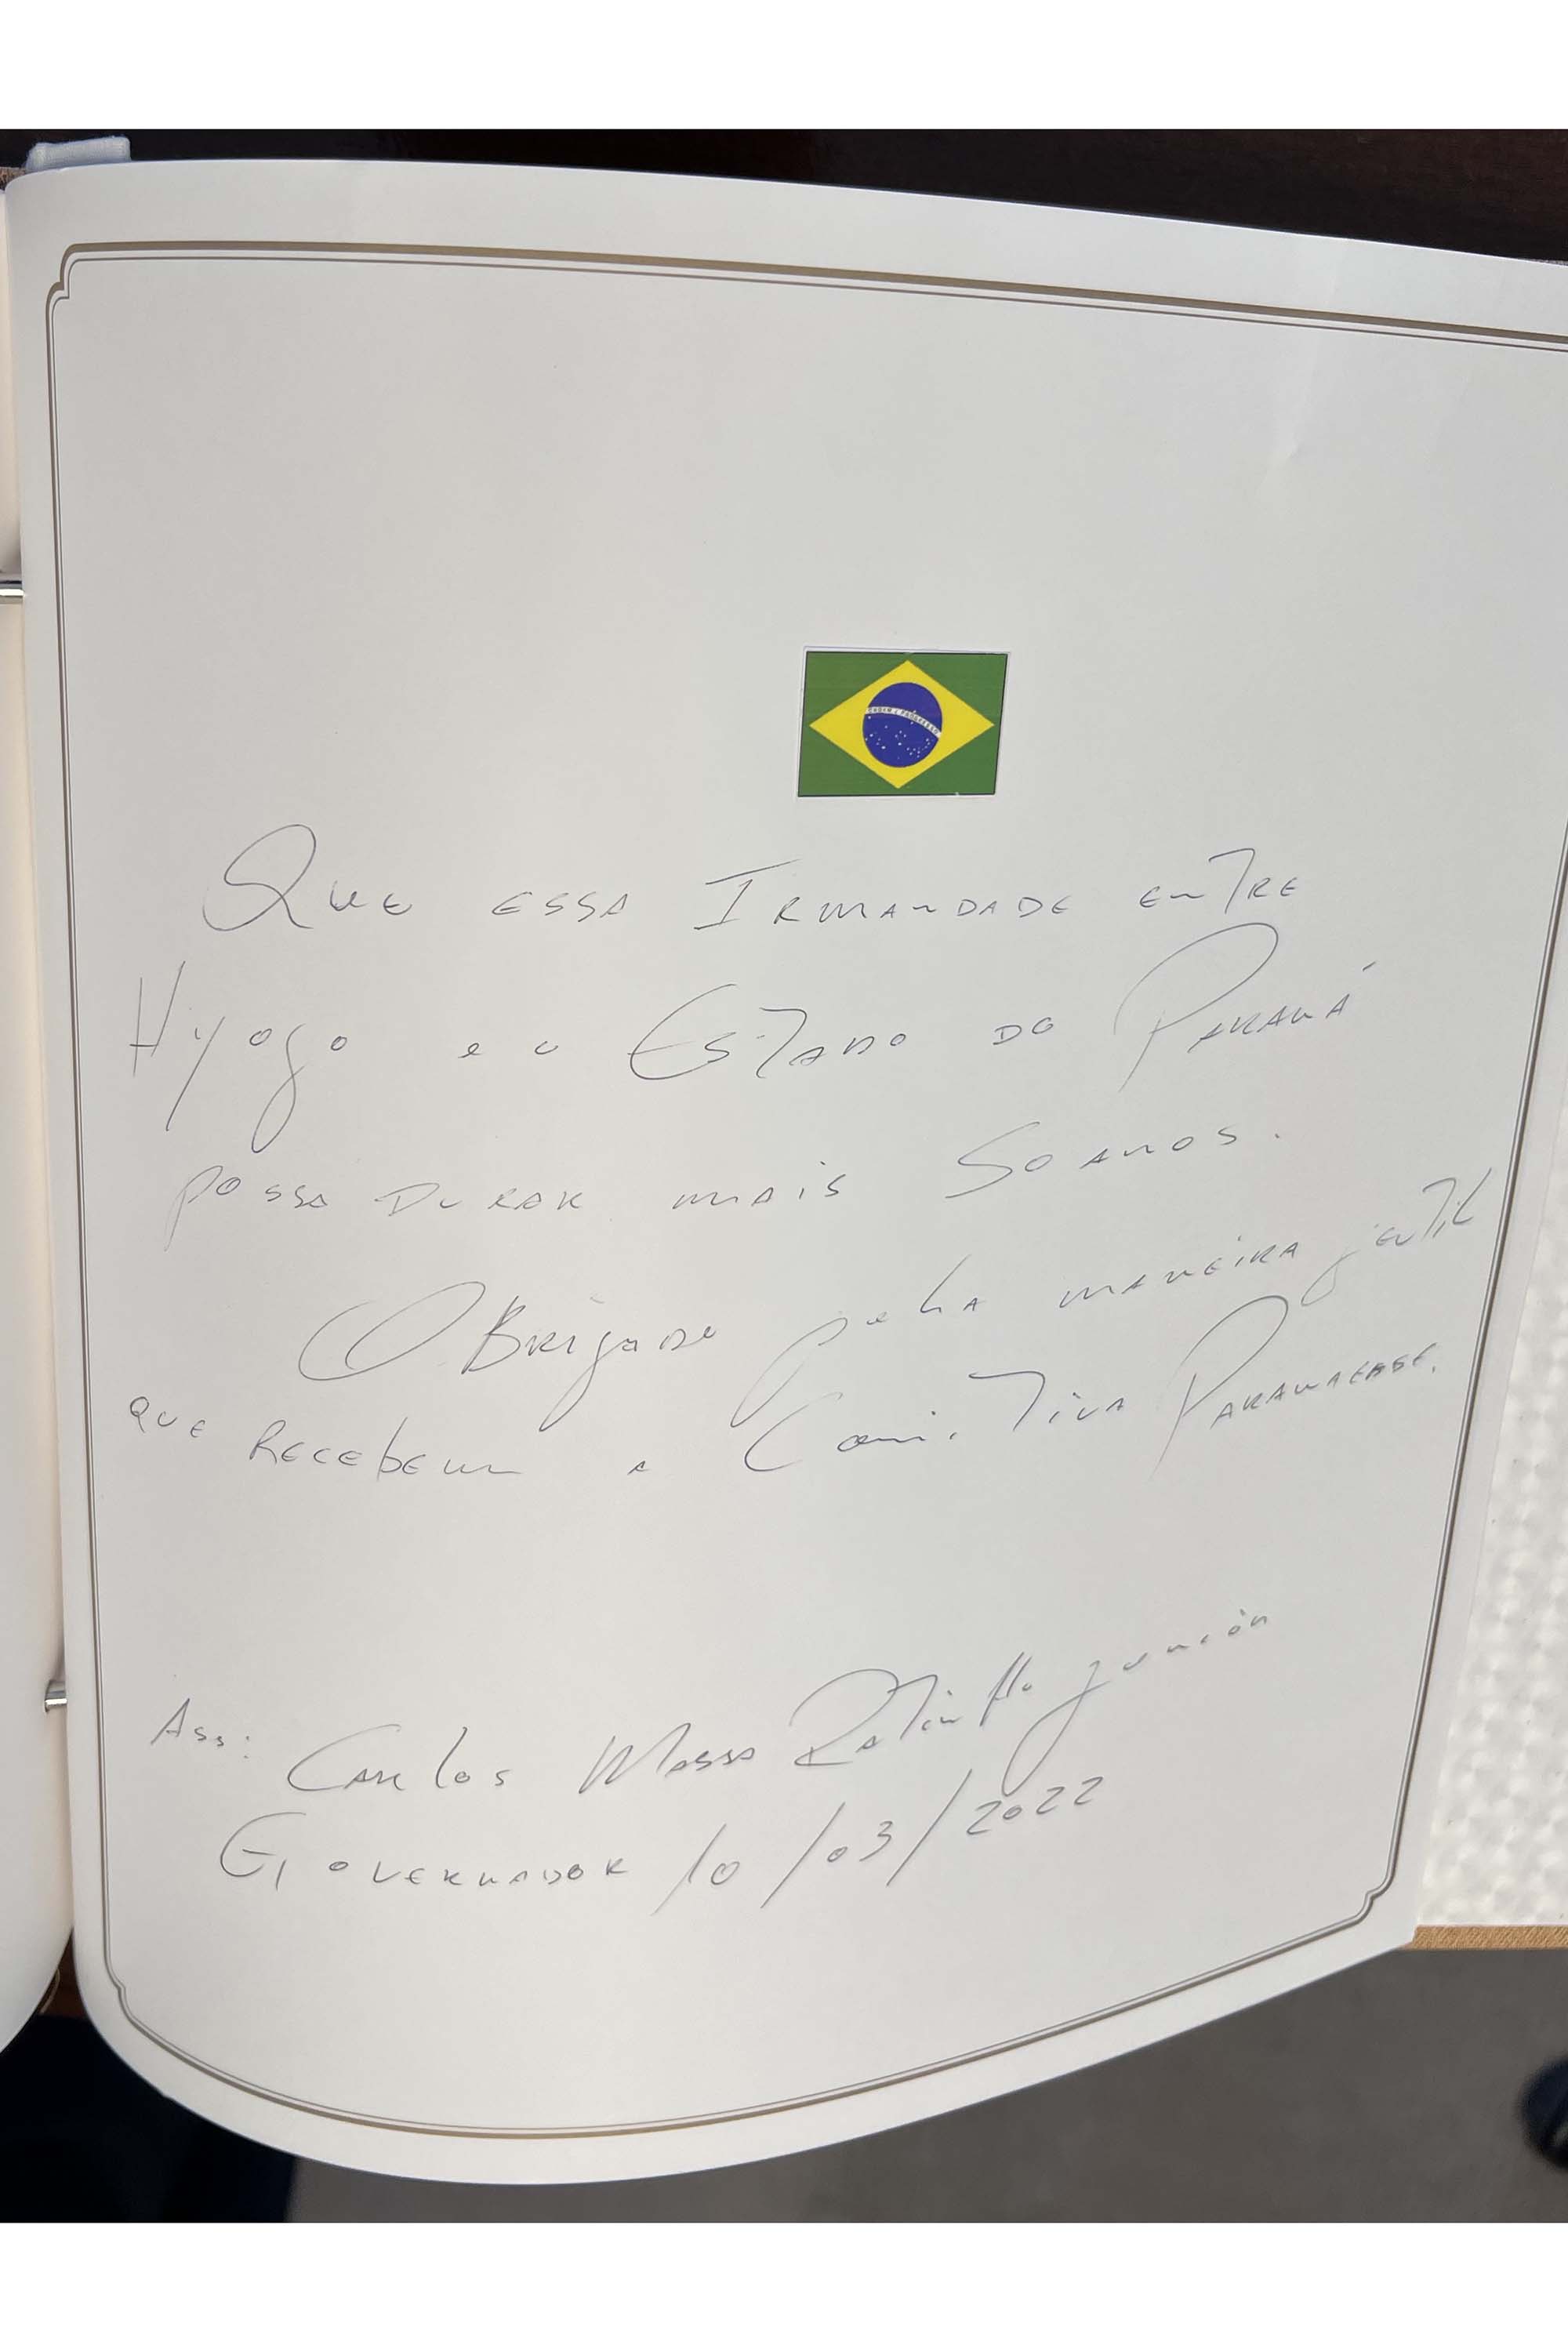 ORDEM E PROGRESSO
Que essa Irmandade entre
Hyogo e o Estado do Paraná
possa durar mais 50 anos.
Obrigado pela maneira jentil
que recebem a Comitiva Paranaense.
Ass: Carlos Massa Ratinho Junior
Governador 10/03/2022